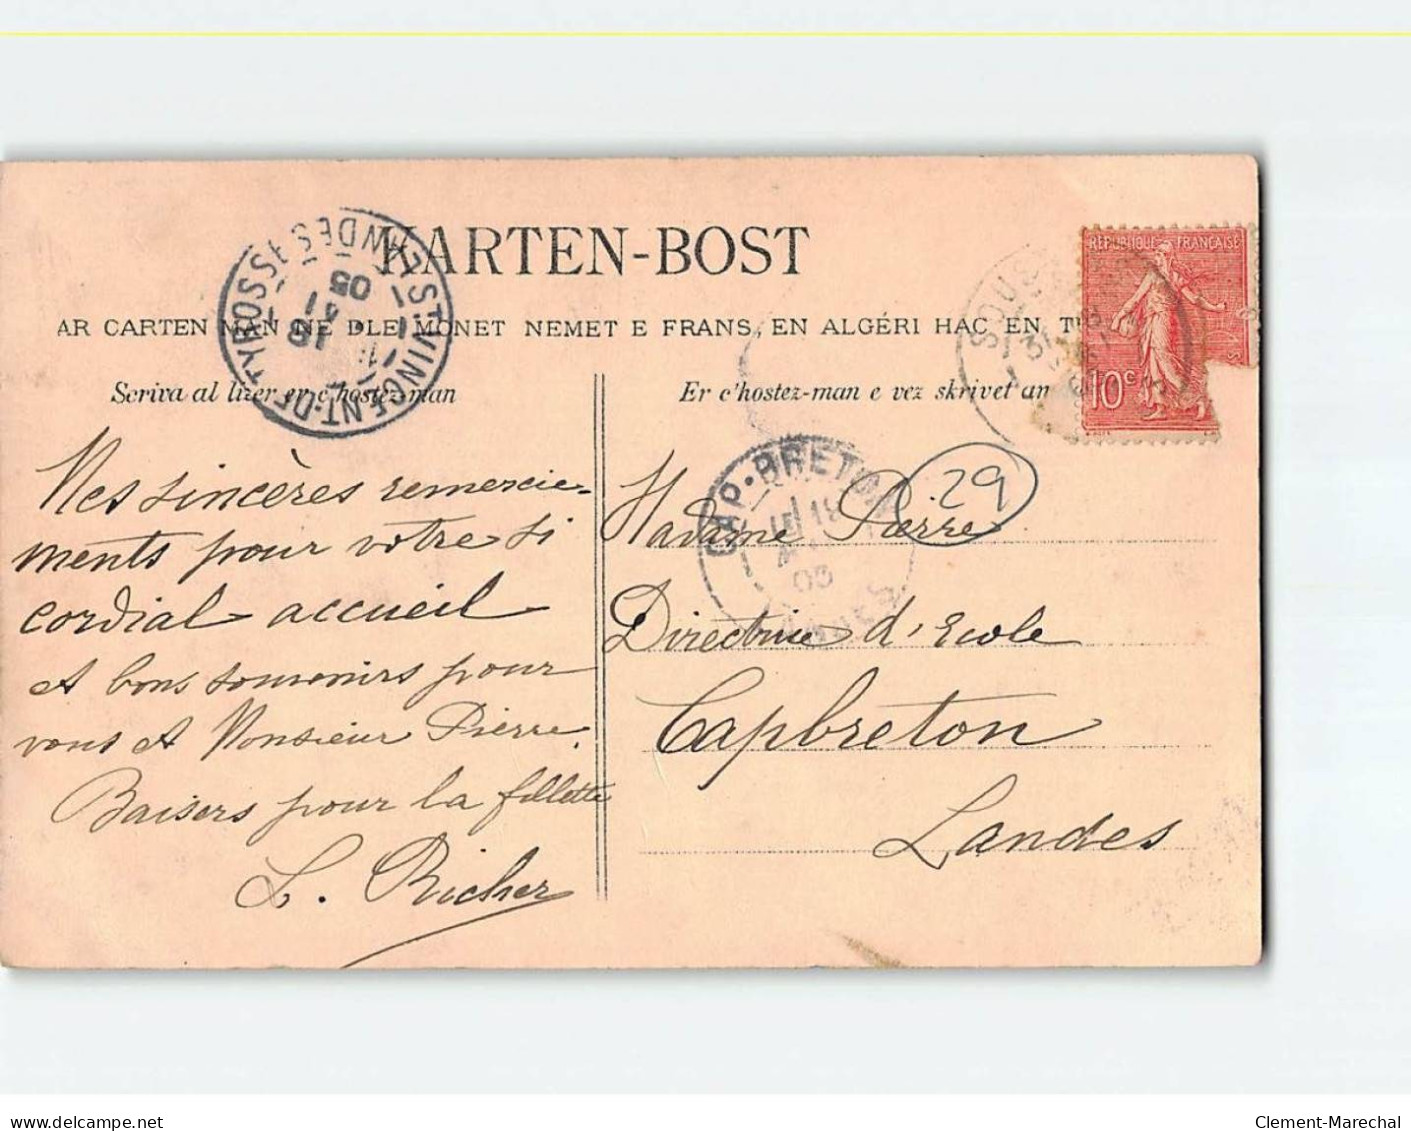 KARTEN-BOST
AR CARTEN MAN NE DLE MONET NEMET E FRANS, EN ALGÉRI HAC EN TU
Scriva al lizer er c'hostez-man
Er c'hostez-man e vez skrivet an
ST-VINCENT-DE-TYROSSE
LANDES
18
05
RÉPUBLIQUE FRANÇAISE
10c
CAP-BRETON
LANDES
05
29
Mes sincères remercie-
ments pour votre si
cordial accueil
et bons souvenirs pour
vous et Monsieur Pierre.
Baisers pour la fillette
L. Richer
Madame Pierre
Directrice d'Ecole
Capbreton
Landes
Clement-Marechal